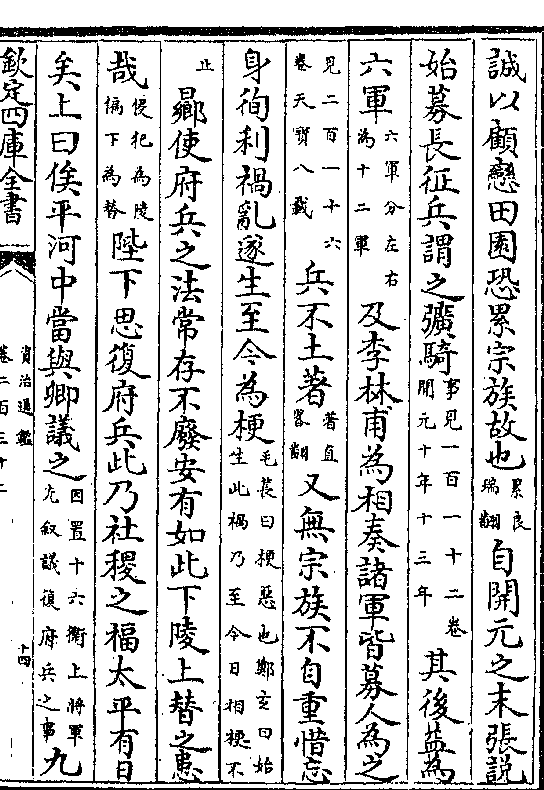 誠以顧戀田園恐累宗族故也累良瑞翻自開元之末張説
始募長征兵謂之彍騎事見二百一十二卷開元十年十三年其後益為
六軍六軍分左右為十二軍及李林甫為相奏諸軍皆募人為之
見二百一十六卷天寳八載兵不土著著直畧翻又無宗族不自重惜忘
身徇利禍亂遂生至今為梗毛萇曰梗惡也鄭𤣥曰始生此禍乃至今日相梗不
止曏使府兵之法常存不廢安有如此下陵上替之患
哉侵犯為陵偏下為替陛下思復府兵此乃社稷之福太平有日
矣上曰俟平河中當與卿議之因置十六衛上將軍先叙議復府兵之事九
欽定四庫全書
資治通鑑
卷二百三十二
十四